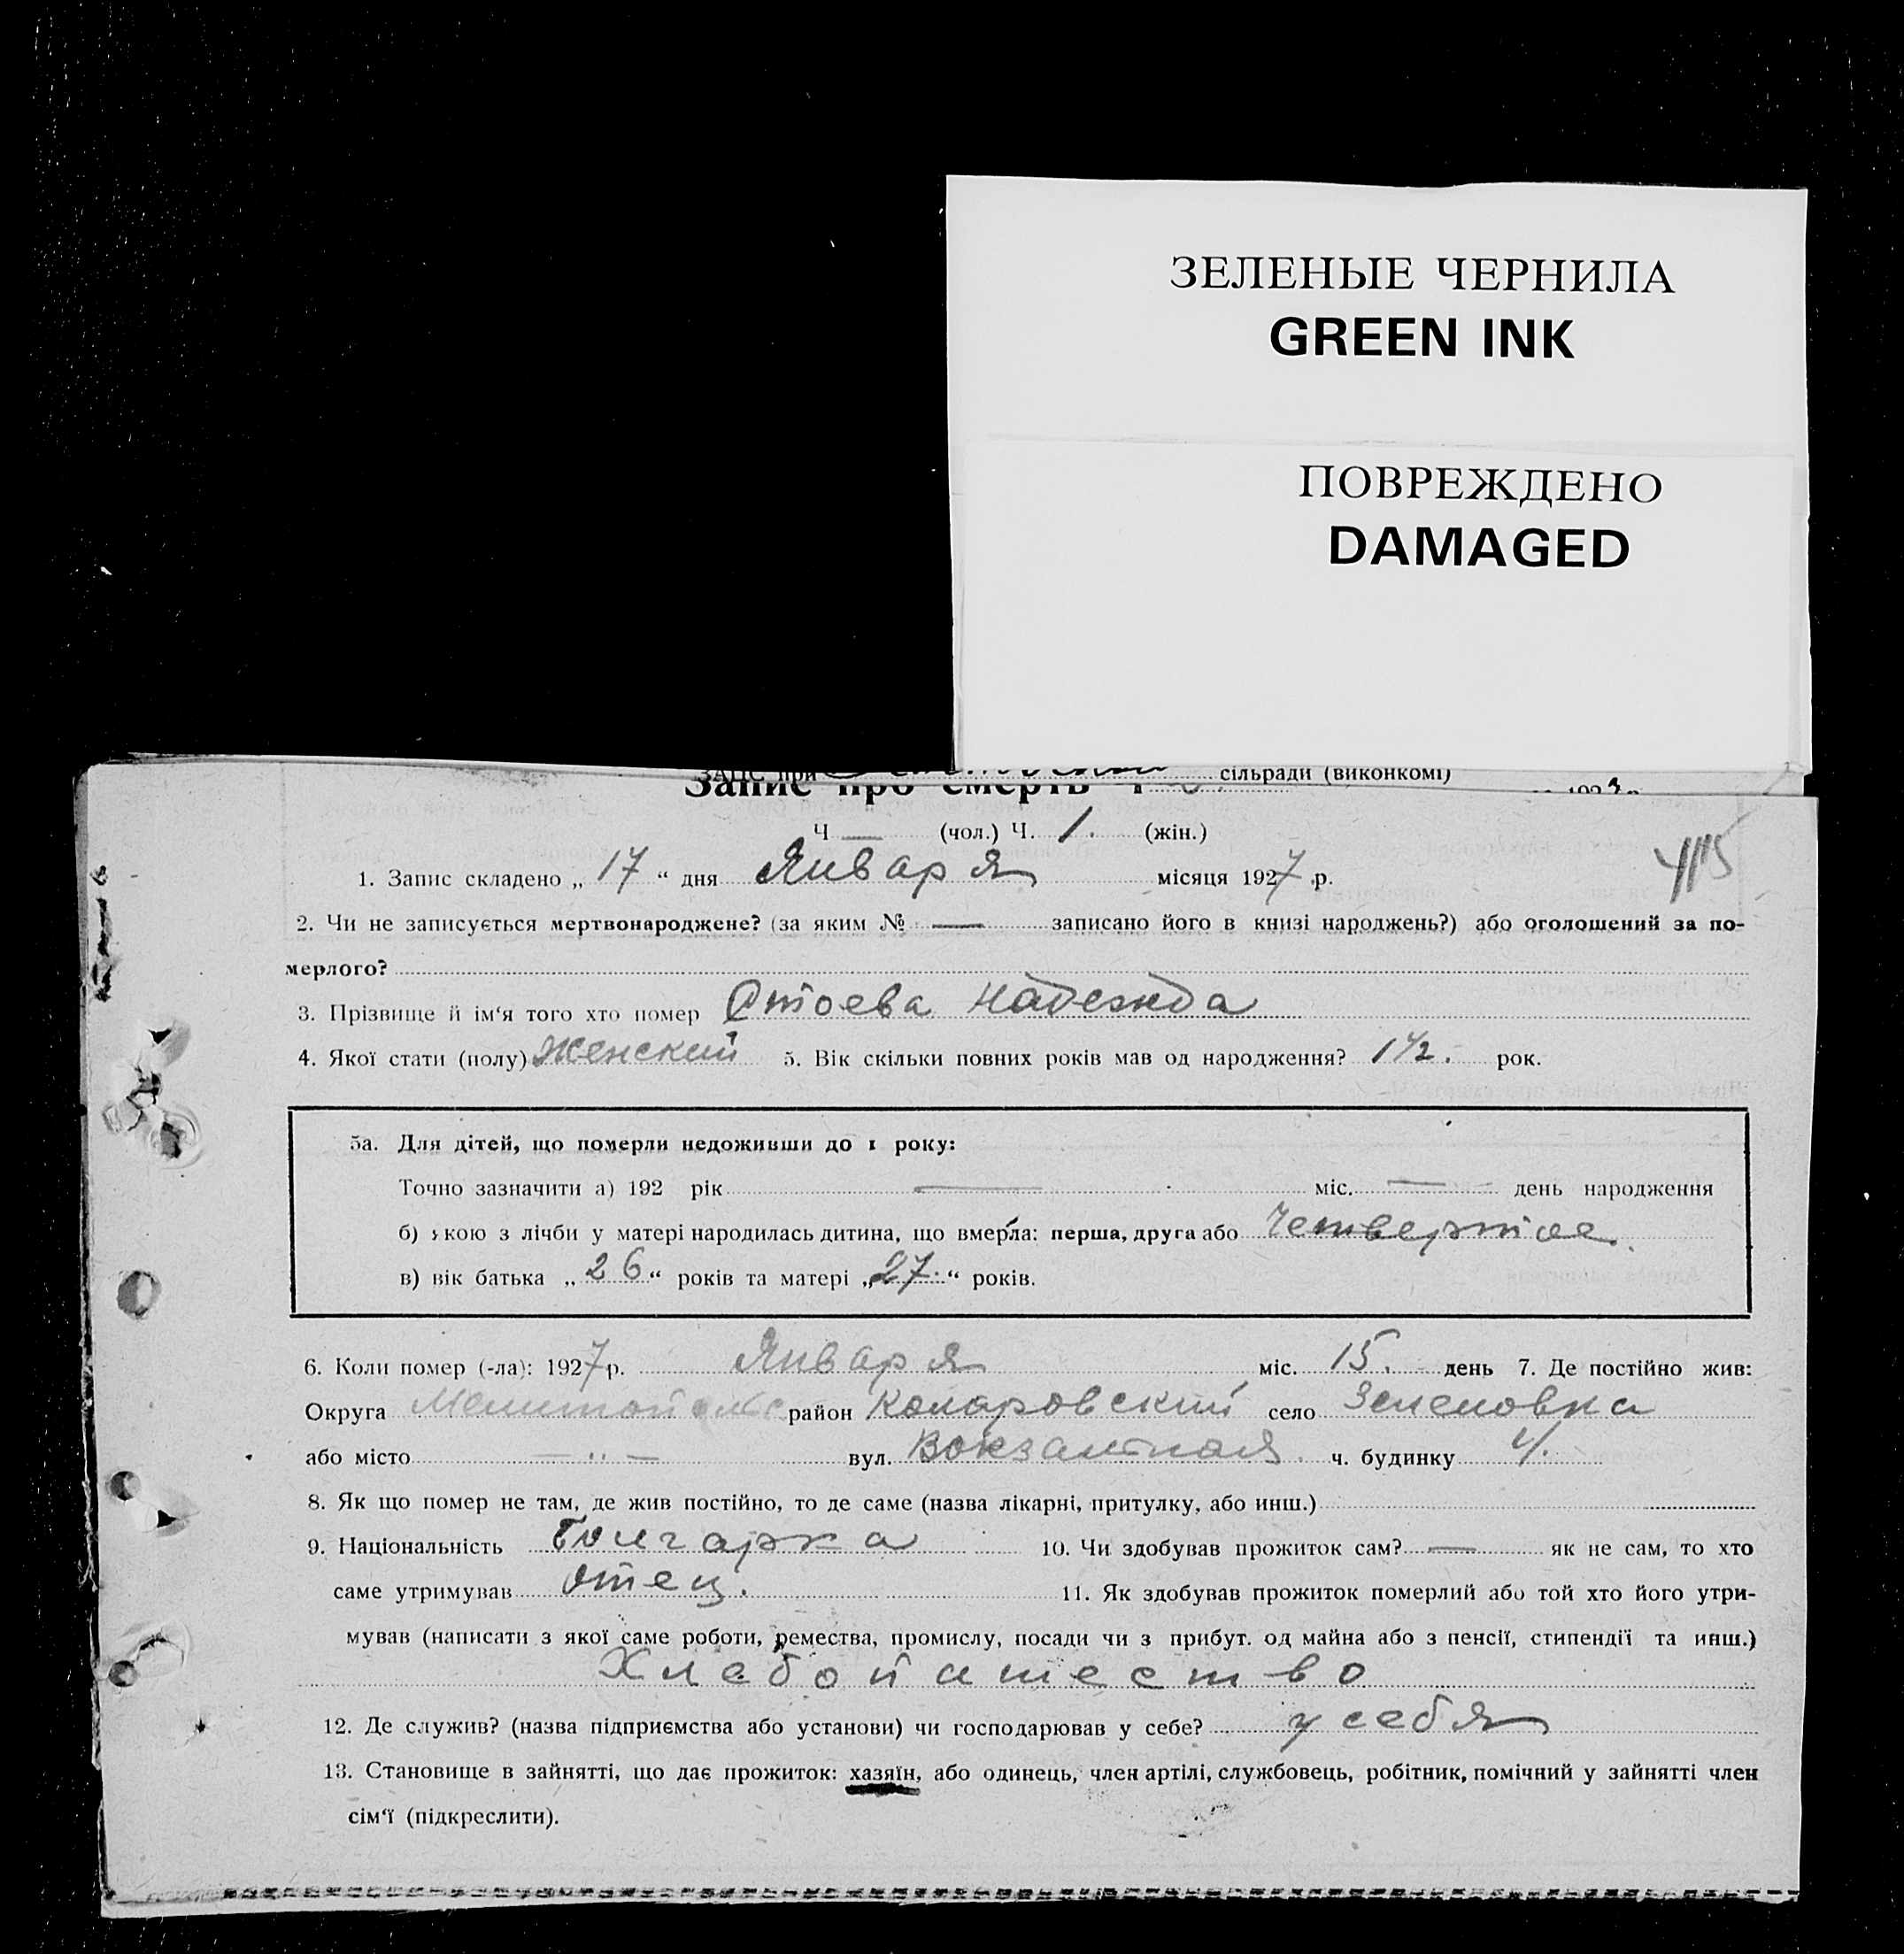 ЗЕЛЕНЫЕ ЧЕРНИЛА
GREEN INK
ПОВРЕЖДЕНО
DAMAGED
ЗАГС при сільради (виконкомі)
Запис про смерть
Ч — (чол.) Ч. 1. (жін.)
1. Запис складено „ 17 “ дня Января місяця 1927 р.
2. Чи не записується мертвонароджене? (за яким № — записано його в книзі народжень?) або оголошений за по-
мерлого?
3. Прізвище й ім‘я того хто помер Стоева Надежда
4. Якої стати (полу) Женский 5. Вік скільки повних років мав од народження? 1 1/2. рок.
5а. Для дітей, що померли недоживши до 1 року:
Точно зазначити а) 192 рік — міс. — день народження
б) якою з лічби у матері народилась дитина, що вмерла: перша, друга або Четвертое.
в) вік батька „ 26 “ років та матері „ 27. “ років.
6. Коли помер (-ла): 1927 р. Января міс. 15. день 7. Де постійно жив:
Округа район Коларовский село Зеленовка
або місто — „ — вул. Вокзальная ч. будинку 4.
8. Як що помер не там, де жив постійно, то де саме (назва лікарні, притулку, або инш.)
9. Національність Болгарка 10. Чи здобував прожиток сам? — як не сам, то хто
саме утримував Отец. 11. Як здобував прожиток померлий або той хто його утри-
мував (написати з якої саме роботи, ремества, промислу, посади чи з прибут. од майна або з пенсії, стипендії та инш.)
Хлебопашество
12. Де служив? (назва підприємства або установи) чи господарював у себе? у себя
13. Становище в зайнятті, що дає прожиток: хазяїн, або одинець, член артілі, службовець, робітник, помічний у зайнятті член
сім‘ї (підкреслити).